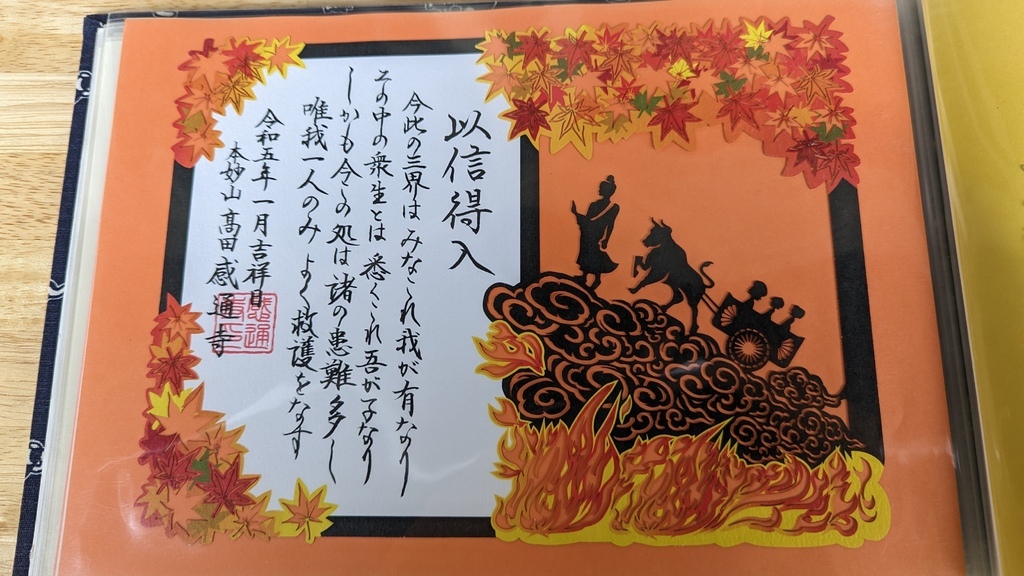 以信得入
今此の三界はみなこれ我が有なり
その中の衆生は悉くこれ吾が子なり
しかも今この処は諸の患難多し
唯我一人のみよく救護をなす
令和五年一月吉祥日
本妙山髙田感通寺